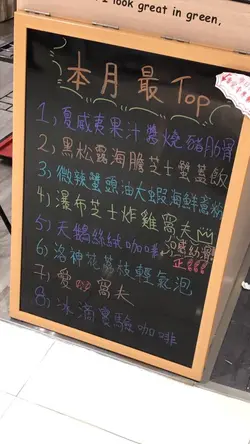 I look great in green,
本月最Top
1、夏威夷果汁醬燒豬肋骨
2、黑松露海膽芝士蟹蓋飯
3、微辣蟹頭油大蝦海鮮意粉
4、瀑布芝士炸雞窩夫
5、天鵝絲絨咖啡
正
6、洛神
輕氣泡
7、愛
窩夫
8、冰滴實驗咖啡